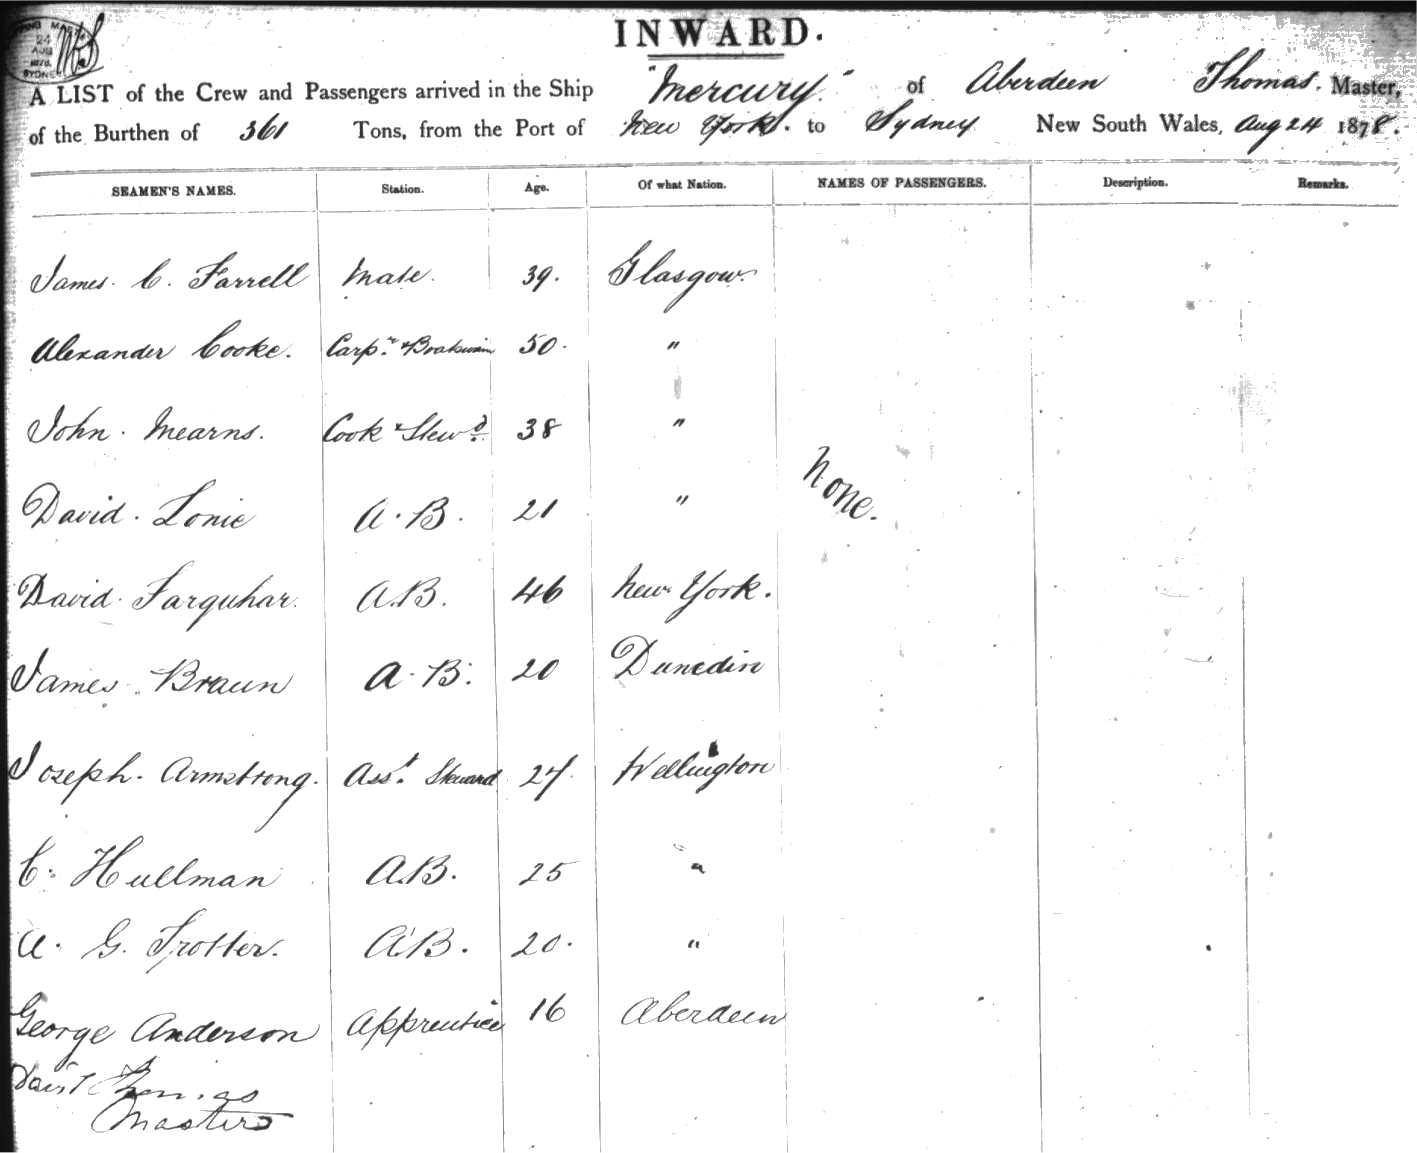 24
AUG
1878
SYDNEY
INWARD.
A LIST of the Crew and Passengers arrived in the Ship "Mercury." of Aberdeen Thomas. Master,
of the Burthen of 361 Tons, from the Port of New York. to Sydney New South Wales, Aug 24 1878.
SEAMEN'S NAMES. Station. Age. Of what Nation. NAMES OF PASSENGERS. Description. Remarks.
James. C. Farrell Mate. 39. Glasgow.
Alexander Cooke. Carpr. & Boatswain 50. "
John. Mearns. Cook & Stewd. 38 "
David. Lonie A.B. 21 "
None.
David. Farquhar. A.B. 46 New York.
James. Braun A.B. 20 Dunedin
Joseph. Armstrong. Asst. Steward 24. Wellington
C. Hullman A.B. 25 "
A. G. Trotter. A.B. 20. "
George Anderson Apprentice 16 Aberdeen
Thomas
Master